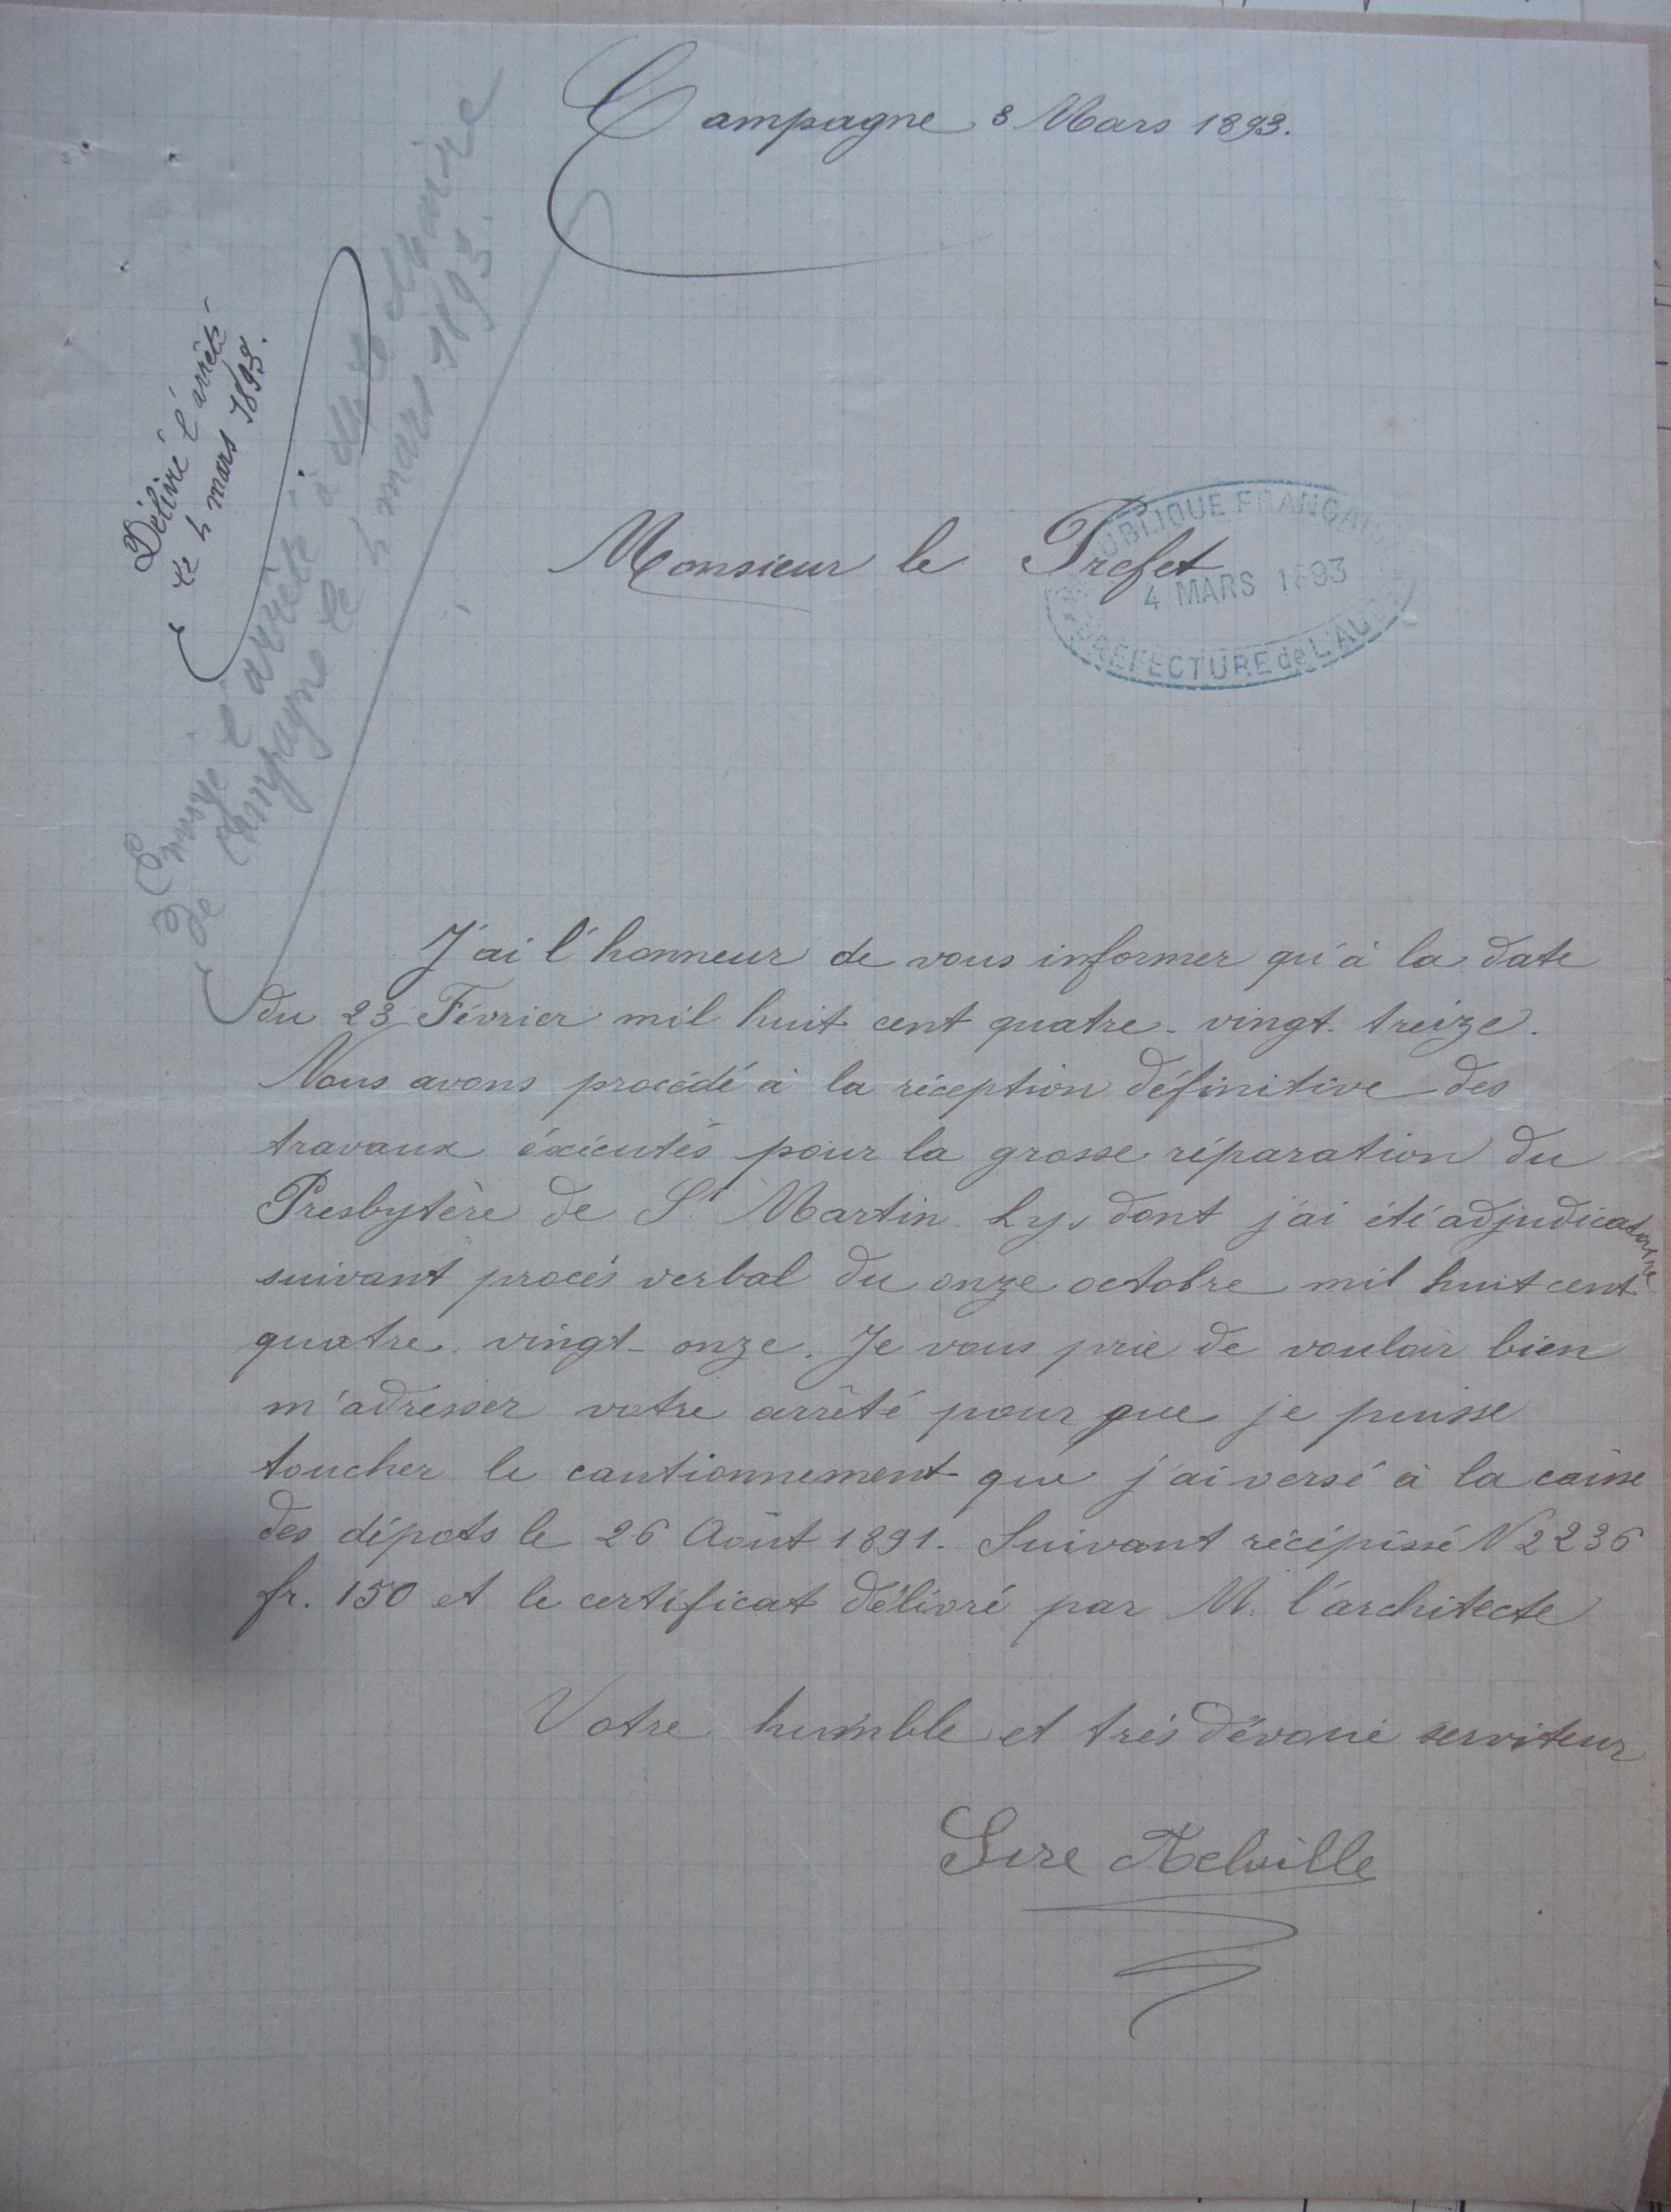 Campagne 3 Mars 1893.
Délivré l'arrêté
le 4 mars 1893.
Envoyé l'arrêté à M. le Maire
de Campagne le 4 mars 1893.
Monsieur le Prefet
RÉPUBLIQUE FRANÇAISE
4 MARS 1893
PRÉFECTURE de L'AUDE
J'ai l'honneur de vous informer qu'à la date
du 23 Février mil huit cent quatre-vingt-treize.
Nous avons procédé à la réception définitive des
travaux éxécutés pour la grosse réparation du
Presbytère de St Martin Lys dont j'ai été adjudicataire
suivant procés verbal du onze octobre mil huit cent
quatre-vingt-onze. Je vous prie de vouloir bien
m'adresser votre arrêté pour que je puisse
toucher le cautionnement que j'ai versé à la caisse
des dépots le 26 Août 1891. Suivant récépissé N 2236
fr. 150 et le certificat délivré par M. l'architecte
Votre humble et trés dévoué serviteur
Sire